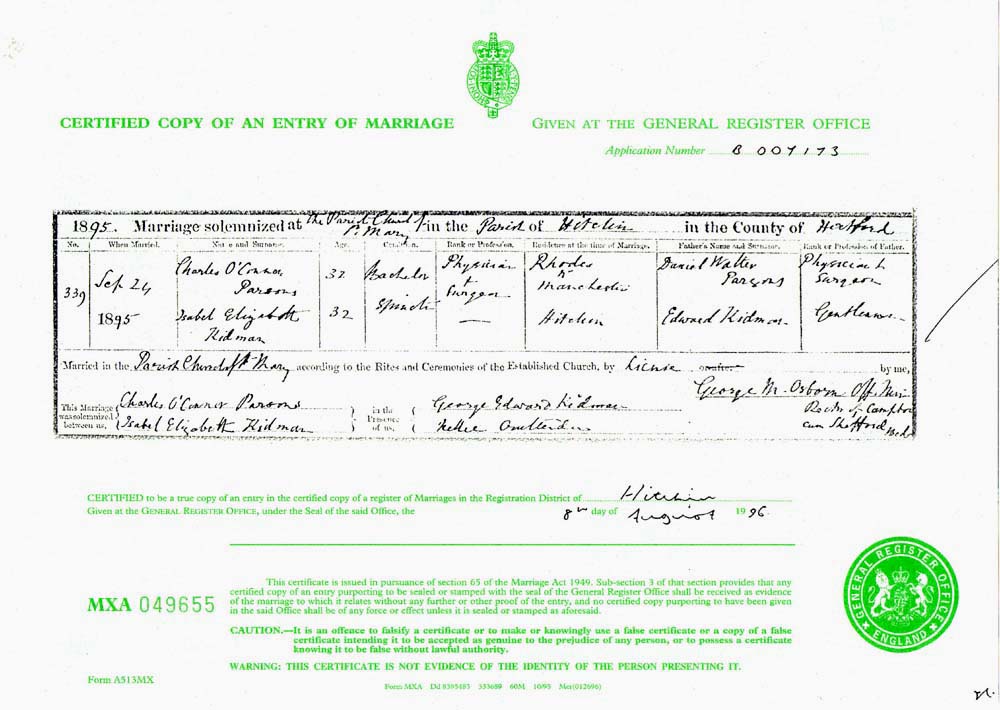 CERTIFIED COPY OF AN ENTRY OF MARRIAGE
GIVEN AT THE GENERAL REGISTER OFFICE
Application Number B 007173
1895. Marriage solemnized at the Parish Church of St. Mary in the Parish of Hitchin in the County of Hertford
No. When Married. Name and Surname. Age. Condition. Rank or Profession. Residence at the time of Marriage. Father's Name and Surname. Rank or Profession of Father.
339 Sep. 24 1895
Charles O'Connor Parsons 32 Bachelor Physician + Surgeon Rhodes Nr Manchester Daniel Walter Parsons Physician + Surgeon
Isabel Elizabeth Kidman 32 Spinster — Hitchin Edward Kidman Gentleman
Married in the Parish Church of St Mary according to the Rites and Ceremonies of the Established Church, by License by me,
George M. Osborn Off. Min.
Rector of Campton
cum Shefford Beds
This Marriage was solemnized between us, Charles O'Connor Parsons
Isabel Elizabeth Kidman
in the Presence of us, George Edward Kidman
Nellie
CERTIFIED to be a true copy of an entry in the certified copy of a register of Marriages in the Registration District of Hitchin
Given at the GENERAL REGISTER OFFICE, under the Seal of the said Office, the 8th day of August 1996
This certificate is issued in pursuance of section 65 of the Marriage Act 1949. Sub-section 3 of that section provides that any
certified copy of an entry purporting to be sealed or stamped with the seal of the General Register Office shall be received as evidence
of the marriage to which it relates without any further or other proof of the entry, and no certified copy purporting to have been given
in the said Office shall be of any force or effect unless it is sealed or stamped as aforesaid.
MXA 049655
CAUTION.—It is an offence to falsify a certificate or to make or knowingly use a false certificate or a copy of a false
certificate intending it to be accepted as genuine to the prejudice of any person, or to possess a certificate
knowing it to be false without lawful authority.
WARNING: THIS CERTIFICATE IS NOT EVIDENCE OF THE IDENTITY OF THE PERSON PRESENTING IT.
GENERAL REGISTER OFFICE
ENGLAND
Form A513MX
Form MXA Dd 8395483 333689 60M 10/95 Mcr(012696)